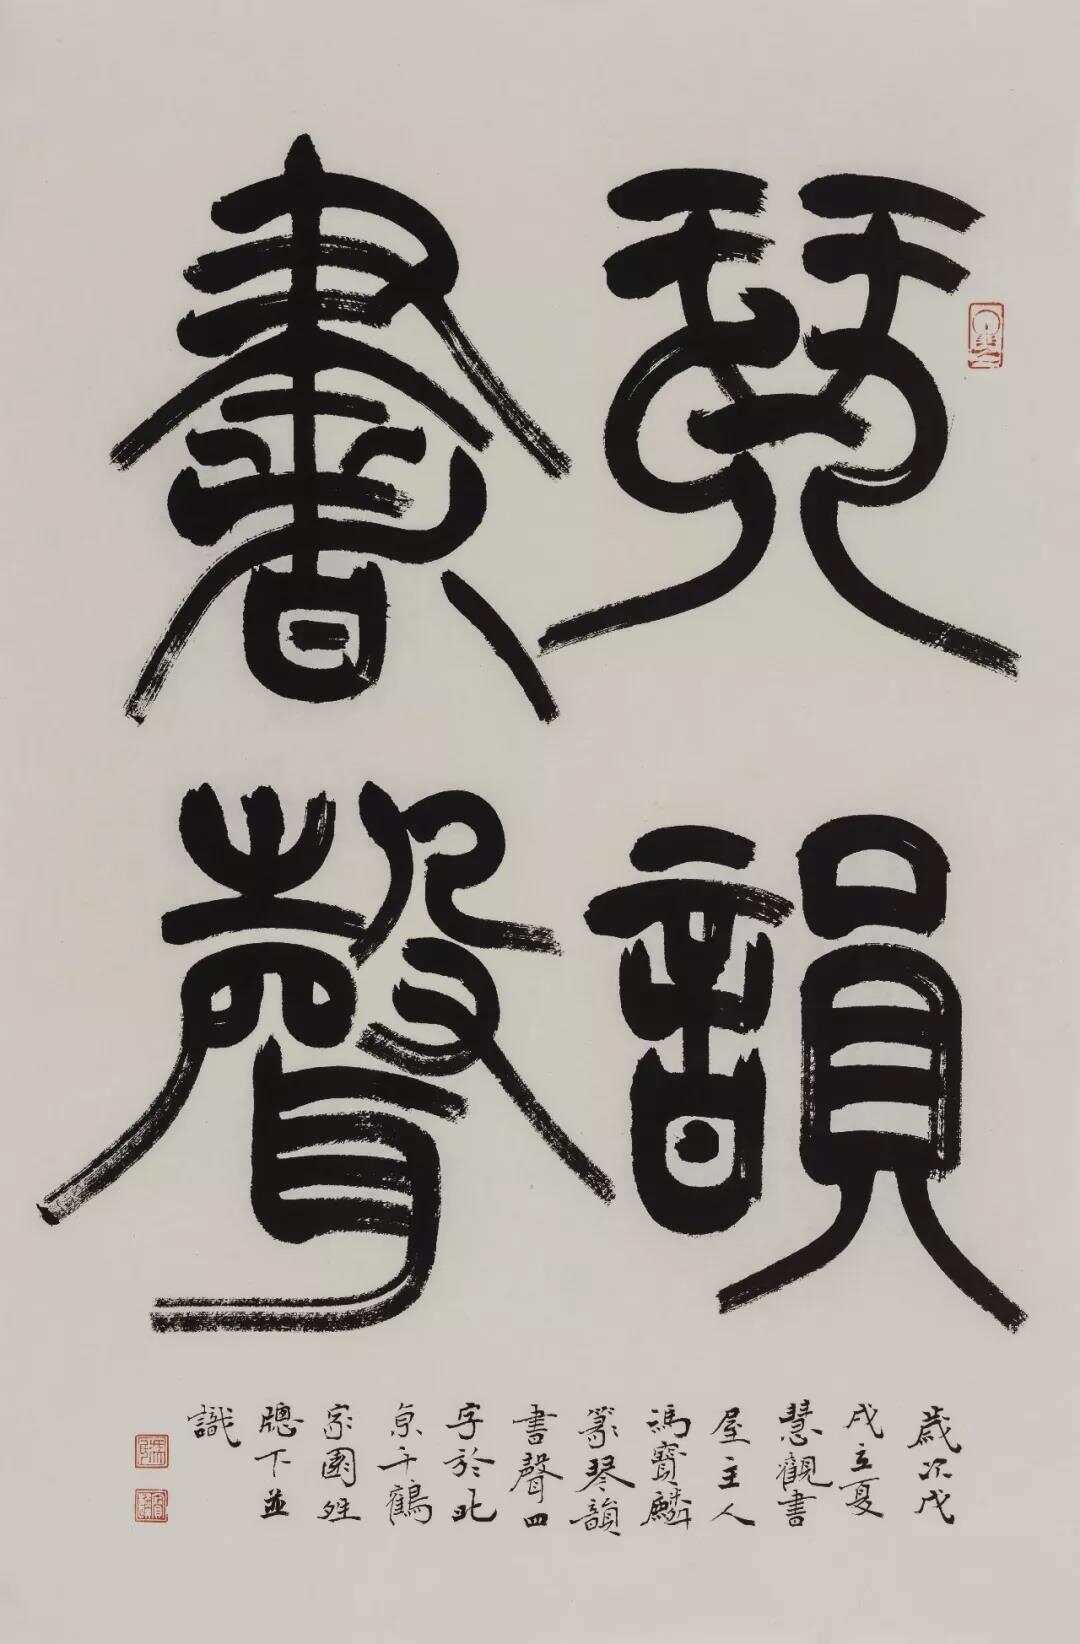 琴韻
書聲
歲次戊
戌立夏
慧觀書
屋主人
馮寶麟
篆琴韻
書聲四
字於北
京千鶴
家園北
牕下並
識